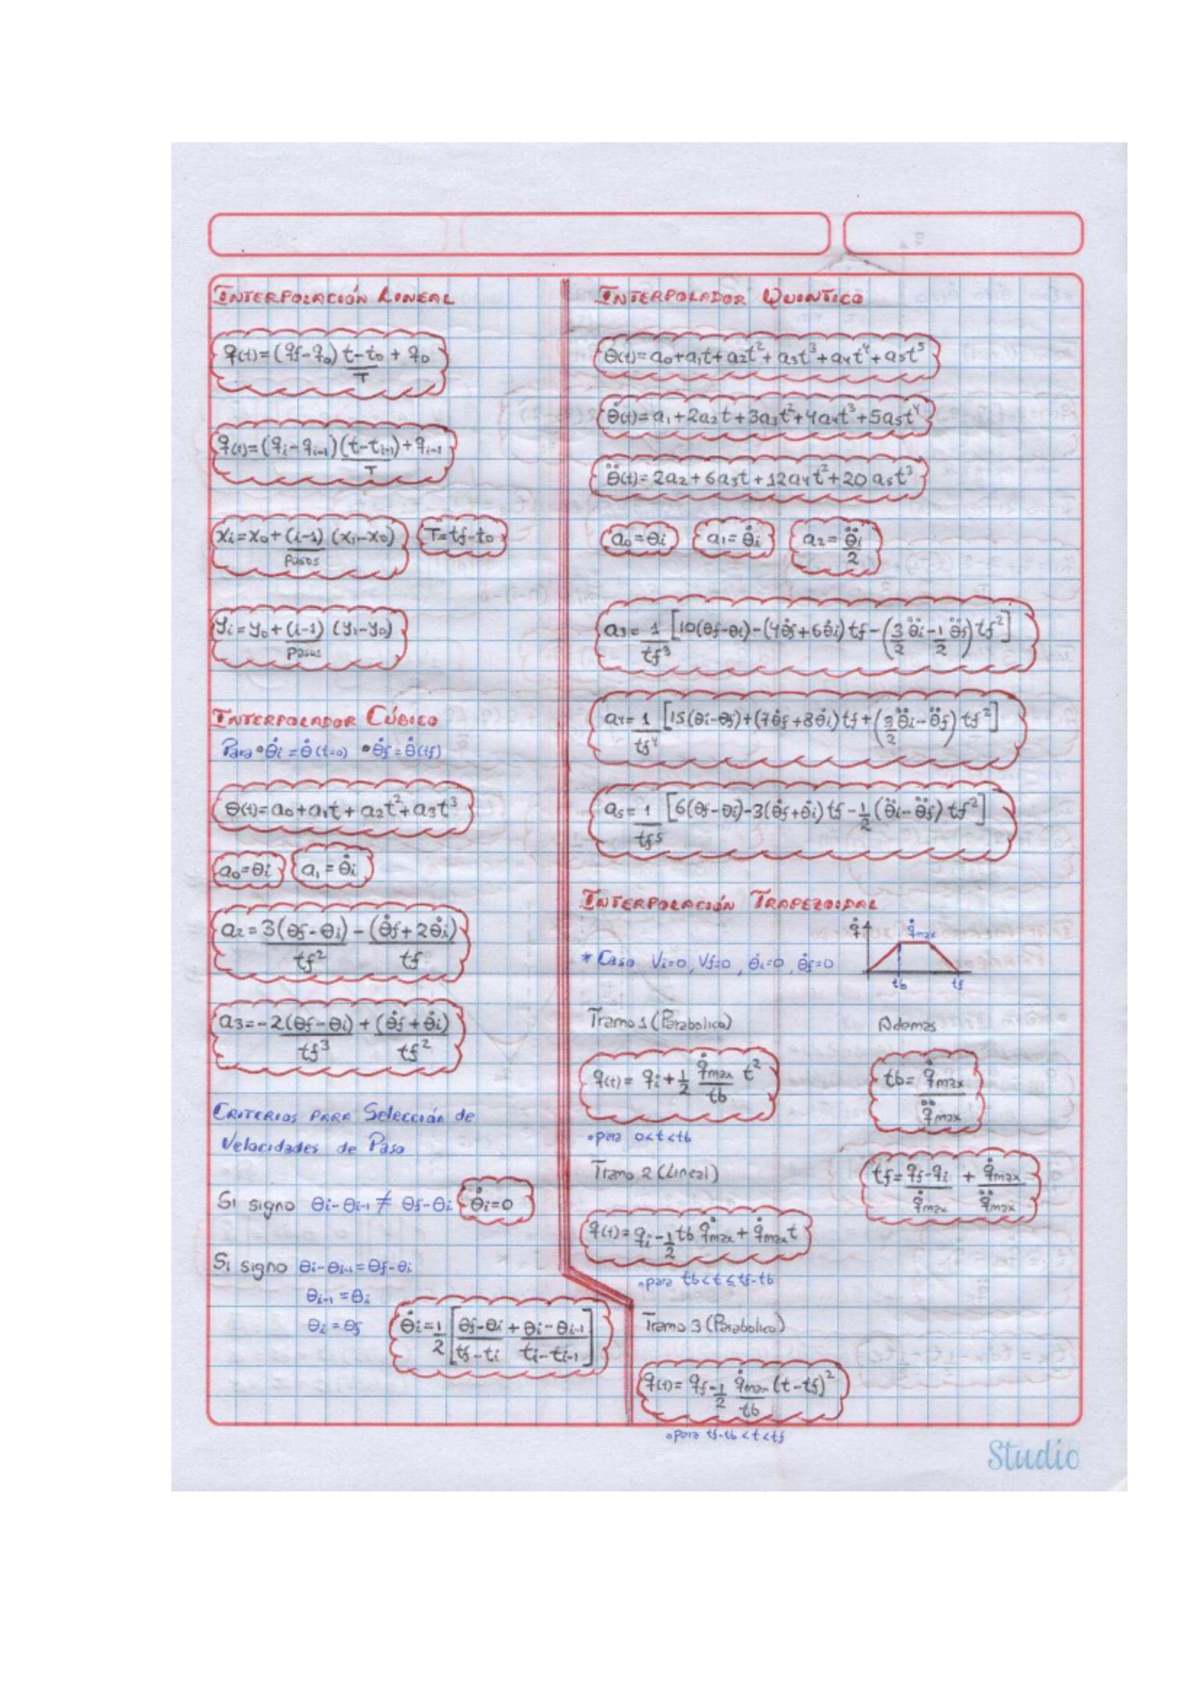 INTERPOLACIÓN LINEAL
q(t)=(qf-q0) (t-t0)/T + q0
q(t)=(qi-qi-1)(t-ti-1)/T+qi-1
xi=x0+(i-1)/Pasos (x1-x0)
T=tf-t0
yi=y0+(i-1)/Pasos (y1-y0)
INTERPOLADOR CÚBICO
Para •θ̇i=θ̇(t=0) •θ̇f=θ̇(tf)
θ(t)=a0+a1t+a2t²+a3t³
a0=θi
a1=θ̇i
a2=3(θf-θi)/tf² - (θ̇f+2θ̇i)/tf
a3=-2(θf-θi)/tf³ + (θ̇f+θ̇i)/tf²
CRITERIOS PARA Selección de
Velocidades de Paso
Si signo θi-θi-1 ≠ θf-θi
θ̇i=0
Si signo θi-θi-1=θf-θi
θi-1=θi
θi=θf
θ̇i=1/2[(θf-θi)/(tf-ti) + (θi-θi-1)/(ti-ti-1)]
INTERPOLADOR QUINTICO
θ(t)=a0+a1t+a2t²+a3t³+a4t⁴+a5t⁵
θ̇(t)=a1+2a2t+3a3t²+4a4t³+5a5t⁴
θ̈(t)=2a2+6a3t+12a4t²+20a5t³
a0=θi
a1=θ̇i
a2=θ̈i/2
a3=1/tf³[10(θf-θi)-(4θ̇f+6θ̇i)tf-(3/2 θ̈i-1/2 θ̈f)tf²]
a4=1/tf⁴[15(θi-θf)+(7θ̇f+8θ̇i)tf+(3/2 θ̈i-θ̈f)tf²]
a5=1/tf⁵[6(θf-θi)-3(θ̇f+θ̇i)tf-1/2(θ̈i-θ̈f)tf²]
INTERPOLACIÓN TRAPEZOIDAL
q̇
q̇max
tb
tf
* Caso Vi=0, Vf=0, θ̇i=0, θ̇f=0
Tramo 1 (Parabolico)
q(t)=qi+1/2 q̇max/tb t²
•para 0<t<tb
Ademas
tb=q̇max/q̈max
tf=(qf-qi)/q̇max + q̇max/q̈max
Tramo 2 (Lineal)
q(t)=qi-1/2 tb q̇max+q̇max t
•para tb<t≤tf-tb
Tramo 3 (Parabolico)
q(t)=qf-1/2 q̇max/tb (t-tf)²
•para tf-tb<t<tf
Studio